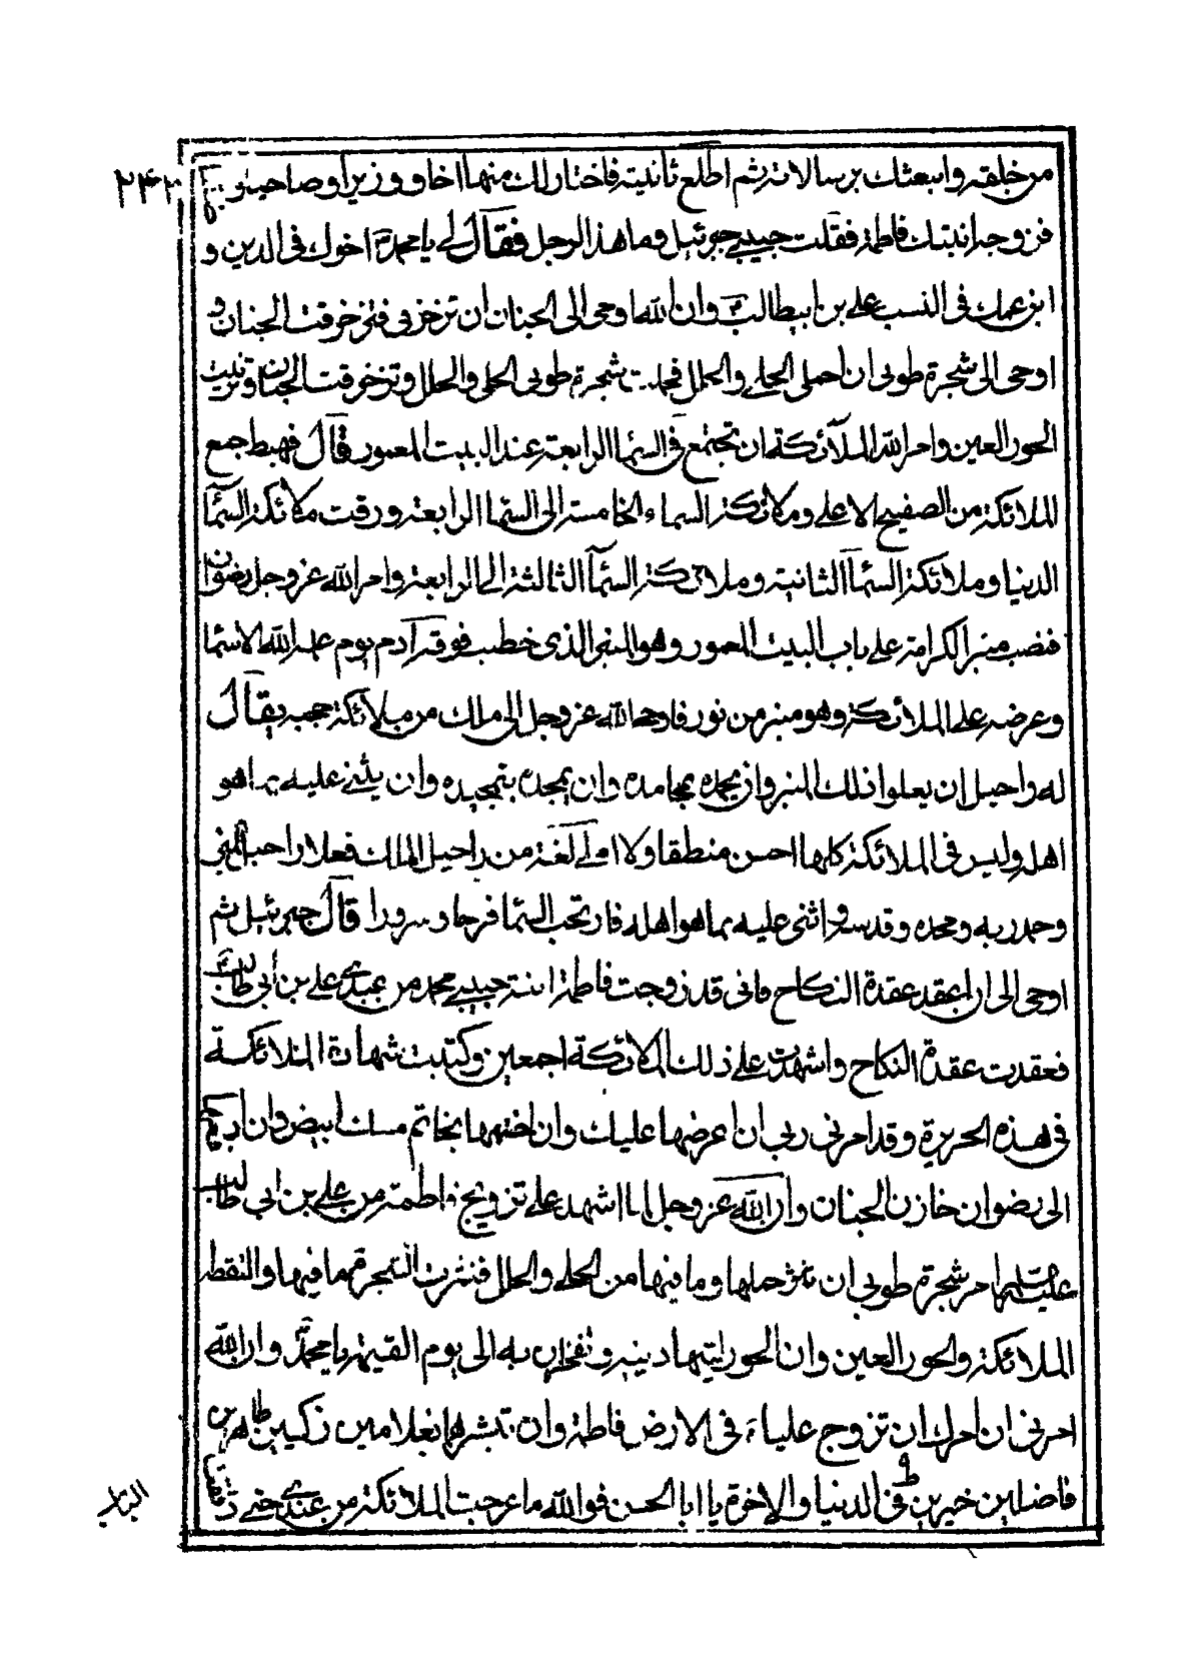 من خلقه وابتعثك برسالاته ثم اطلع ثانية فاختار لك منها اخا ووزيرا وصاحبا و
فزوجه ابنتك فاطمة فقلت حبيبي جبرئيل وما هذا الرجل فقال لي يا محمد اخوك فى الدين و
ابن عمك فى النسب علي بن ابيطالب وان الله اوحى الى الجنان ان تزخرفى فتزخرفت الجنان و
اوحى الى شجرة طوبى ان احملى الحلي والحلل فحملت شجرة طوبى الحلى والحلل وتزخرفت الجنان وتزينت
الحور العين وامر الله الملآئكة ان تجتمع فى السمآ الرابعة عند البيت المعمور قال فهبط جمع
الملائكة من الصفيح الاعلى وملائكة السماء الخامسة الى السمآ الرابعة ورقت ملائكة السمآ
الدنيا وملائكة السمآ الثانية وملائكة السمآ الثالثة الى الرابعة وامر الله عز وجل رضوان
فنصب منبر الكرامة على باب البيت المعمور وهو المنبر الذى خطب فوقه آدم يوم علمه الله الاسمآ
وعرضه على الملائكة وهو منبر من نور فاوحى الله عز وجل الى ملك من ملائكة حجبه يقال
له راحيل ان يعلوا ذلك المنبر وان يحمده بمحامده وان يمجده بتمجيده وان يثنى عليه بما هو
اهله وليس فى الملائكة كلها احسن منطقا ولا لغة من راحيل الملك فعلا راحيل المنبر
وحمد ربه ومجده وقدسه واثنى عليه بما هو اهله فارتجت السمآ فرحا وسرورا قال جبرئيل ثم
اوحى الى ان اعقد عقدة النكاح فانى قد زوجت فاطمة ابنة حبيبي محمد من عبدى على بن أبي طالب
فعقدت عقدة النكاح واشهدت على ذلك الملائكة اجمعين وكتبت شهادة الملائكة
فى هذه الحريرة وقد امرنى ربى ان اعرضها عليك وان اختمها بخاتم مسك ابيض وان
الى رضوان خازن الجنان وان الله عز وجل لما اشهد على تزويج فاطمة من على بن ابي طالب
عليهما امر شجرة طوبى ان تنثر حملها وما فيها من الحلي والحلل فنثرت الشجرة ما فيها والتقط
الملائكة والحور العين وان الحور ليتهادينه وتفخرن به الى يوم القيمة يا محمد وان الله
امرنى ان امرك ان تزوج عليا فى الارض فاطمة وان تبشرهما بغلامين زكيين طاهرين
فاضلين خيرين فى الدنيا والاخرة يا ابا الحسن فوالله ما عرجت الملائكة من عندى حتى دققت
الباب